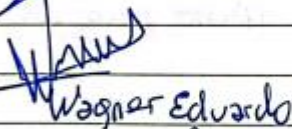 Wagner Eduardo